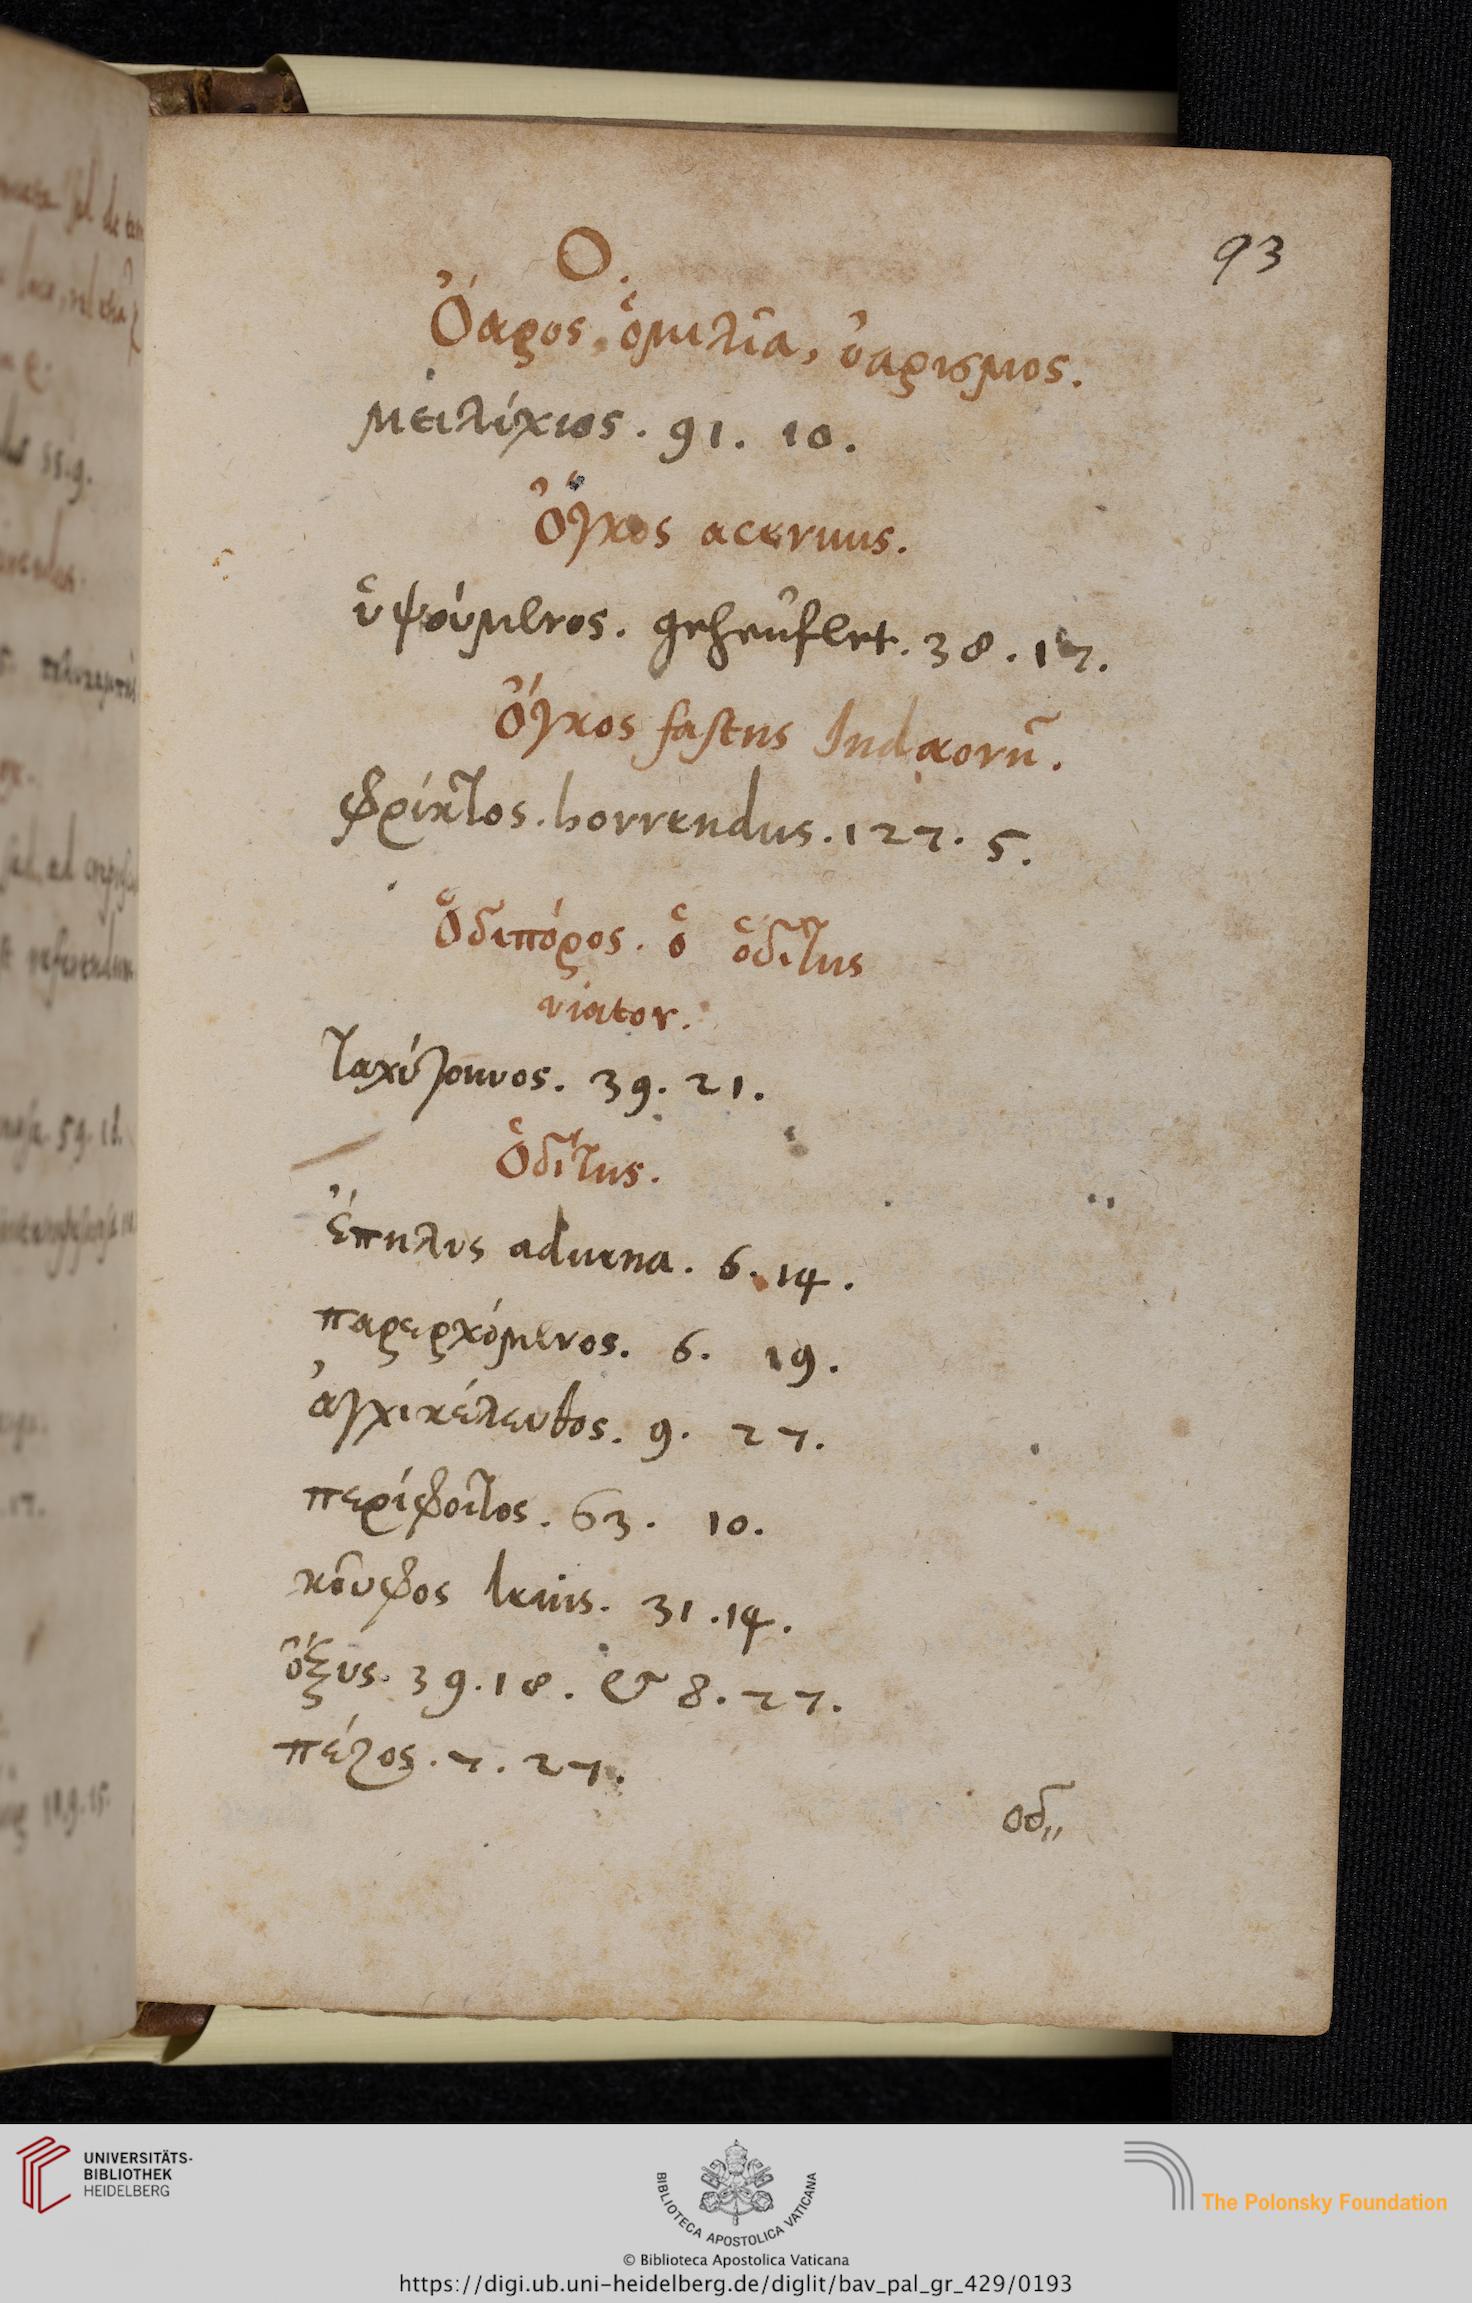 93
Ο.
Ὄαρος, ὁμιλία, ὀαρισμος.
μειλίχιος. 91. 10.
Ὄγκος aceruus.
ὑψούμενος. geheuflet. 38. 17.
Ὄγκος fastus Judæorũ.
φρίκτος. horrendus. 127. 5.
Ὁδιπόρος. ὁ ὁδίτης
viator.
ταχύγουνος. 39. 21.
Ὁδίτης.
ἔπηλυς aduena. 6. 14.
παρερχόμενος. 6. 19.
ἀγχικέλευθος. 9. 27.
περίφοιτος. 63. 10.
κοῦφος leuis. 31. 14.
ὄξυς. 39. 18. & 8. 27.
πέζος. 7. 27.
οδ
UNIVERSITÄTS-
BIBLIOTHEK
HEIDELBERG
BIBLIOTECA APOSTOLICA VATICANA
The Polonsky Foundation
© Biblioteca Apostolica Vaticana
https://digi.ub.uni-heidelberg.de/diglit/bav_pal_gr_429/0193